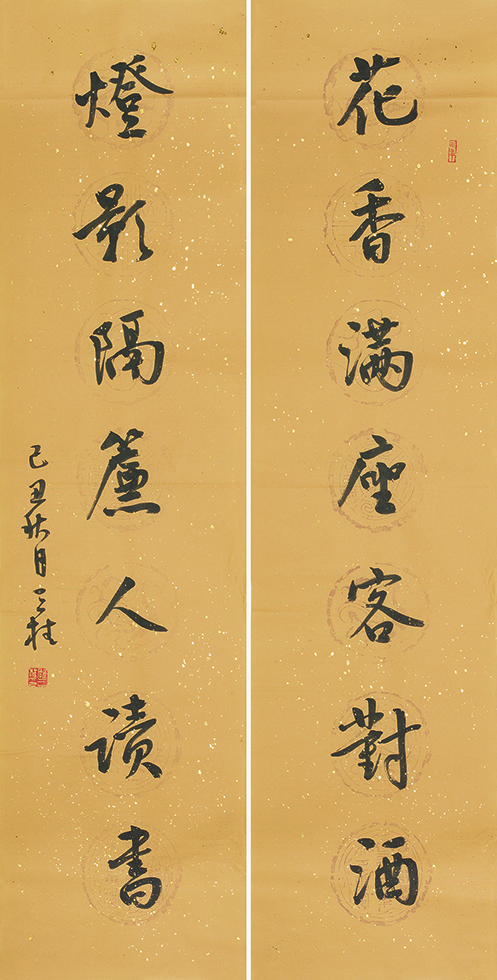 花香满座客對酒
燈影隔簾人读書
己丑秋月三柱